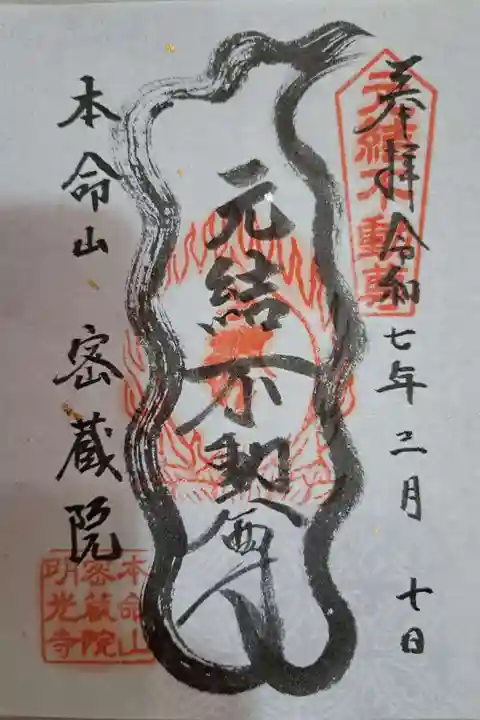 奉拝 令和七年二月 七日
元結不動尊
元結不動尊
本命山 密蔵院
本命山
密蔵院
明光寺